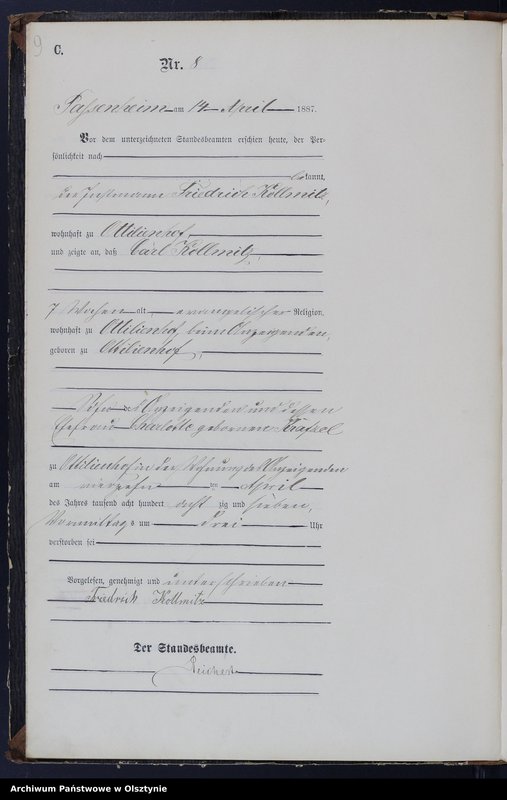 9
C.
Nr. 8
Passenheim am 14 April 1887.
Vor dem unterzeichneten Standesbeamten erschien heute, der Per-
sönlichkeit nach
bekannt,
der Friedrich Kollmitz,
wohnhaft zu Ottilienhof,
und zeigte an, daß Carl Kollmitz,
7 Wochen alt evangelischer Religion,
wohnhaft zu Ottilienhof, beim Anzeigenden,
geboren zu Ottilienhof,
Sohn des Anzeigenden und dessen
Ehefrau Charlotte gebornen
zu Ottilienhof in der Wohnung des Anzeigenden
am vierzehn ten April
des Jahres tausend acht hundert acht zig und sieben,
Vormittags um drei Uhr
verstorben sei
Vorgelesen, genehmigt und unterschrieben
Friedrich Kollmitz
Der Standesbeamte.
Reichert
Archiwum Państwowe w Olsztynie